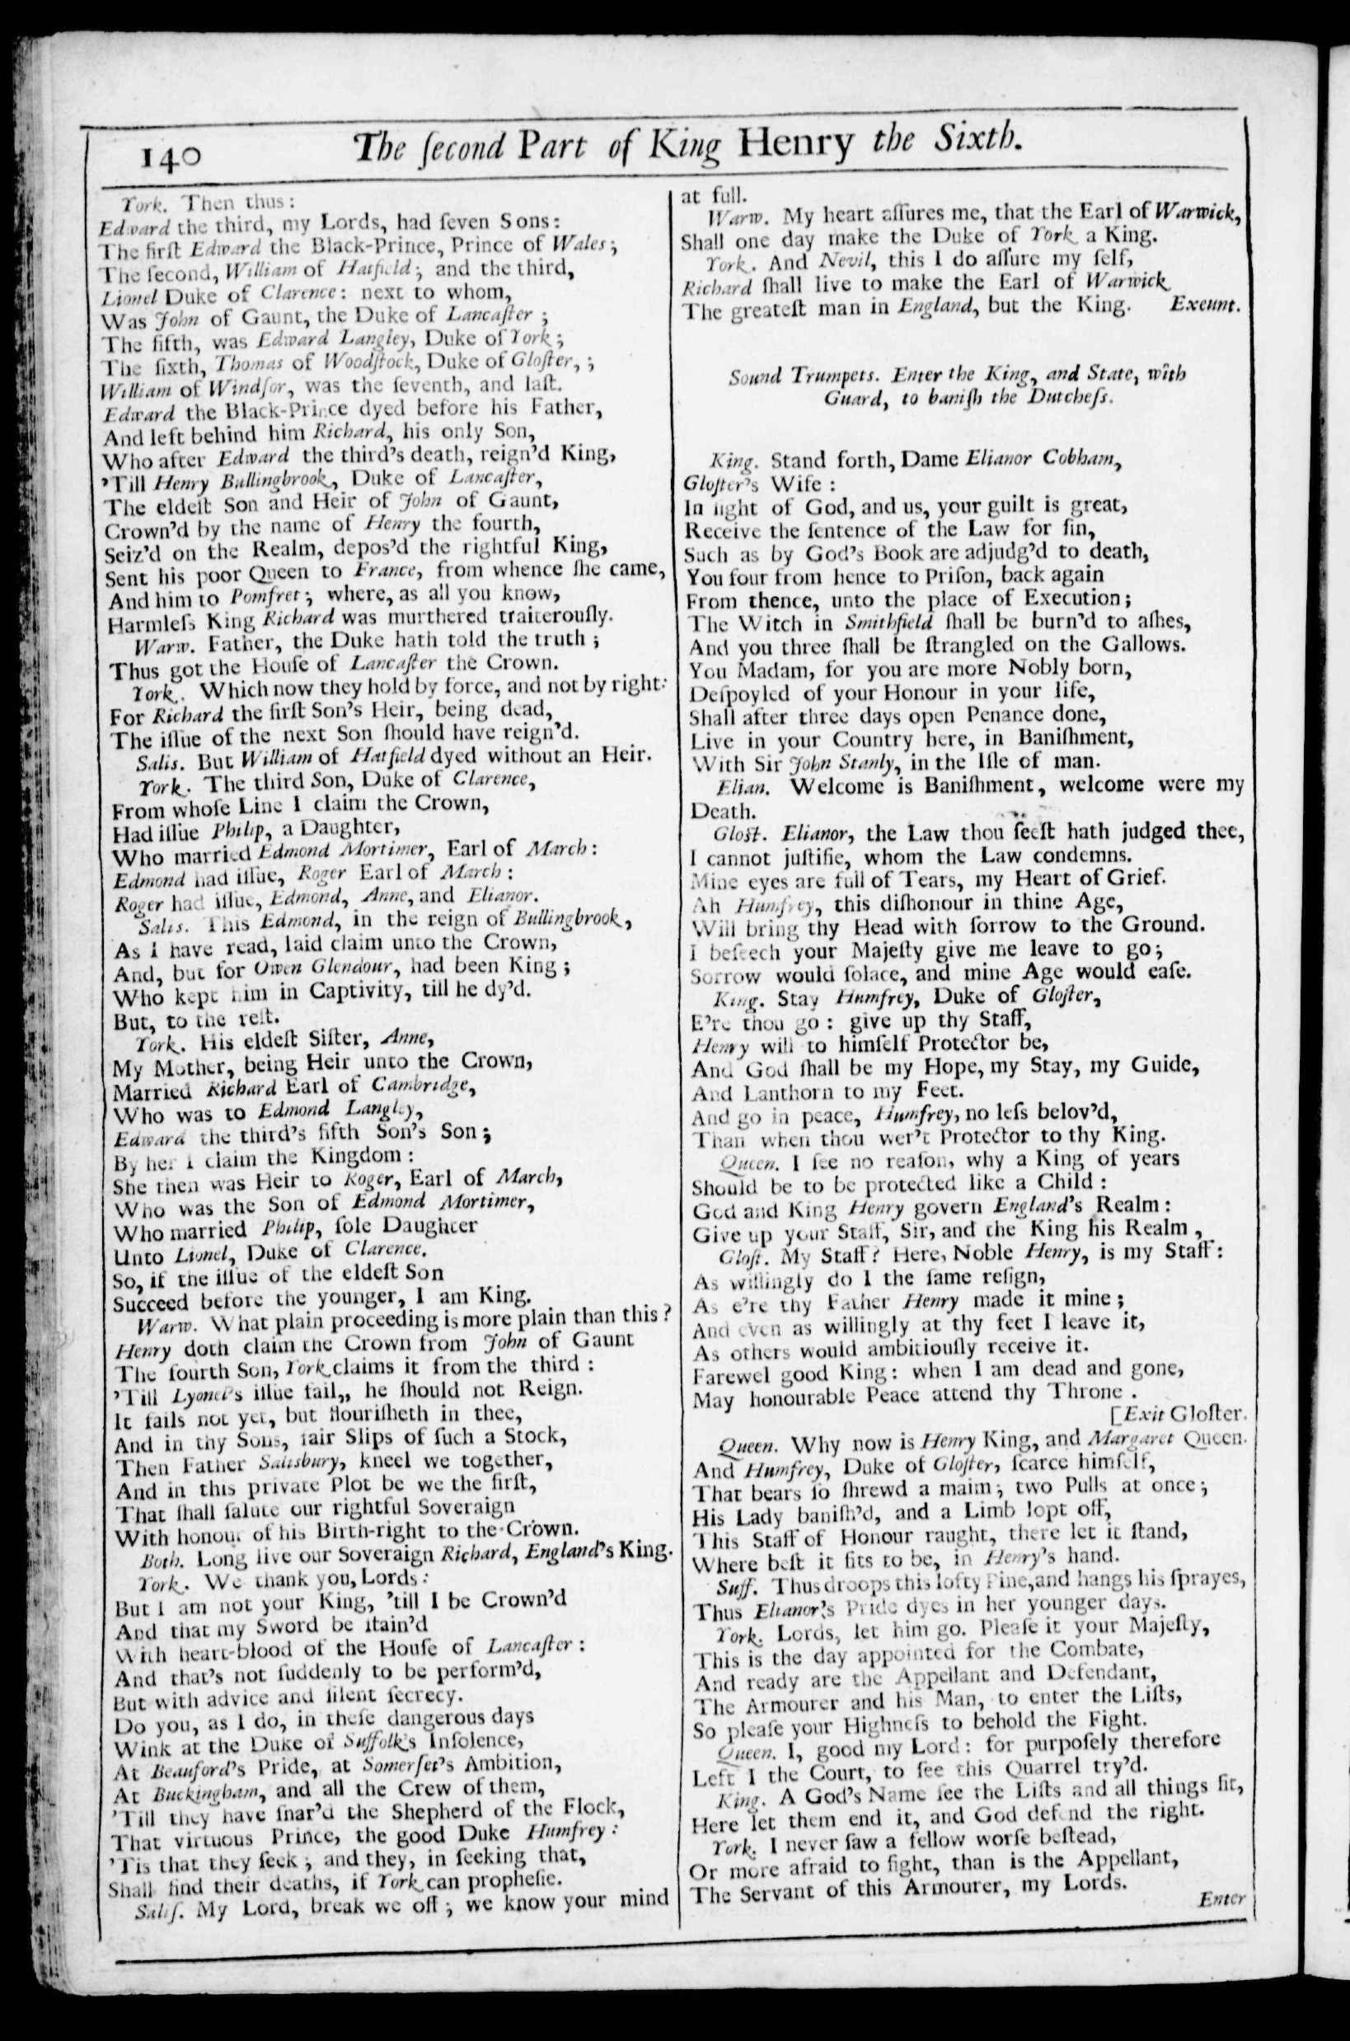 140
The ſecond Part of King Henry the Sixth.
York. Then thus:
Edward the third, my Lords, had ſeven Sons:
The firſt Edward the Black-Prince, Prince of Wales;
The ſecond, William of Hatfield; and the third,
Lionel Duke of Clarence: next to whom,
Was John of Gaunt, the Duke of Lancaſter;
The fifth, was Edward Langley, Duke of York;
The ſixth, Thomas of Woodſtock, Duke of Gloſter,;
William of Windſor, was the ſeventh, and laſt.
Edward the Black-Prince dyed before his Father,
And left behind him Richard, his only Son,
Who after Edward the third's death, reign'd King,
'Till Henry Bullingbrook, Duke of Lancaſter,
The eldeſt Son and Heir of John of Gaunt,
Crown'd by the name of Henry the fourth,
Seiz'd on the Realm, depos'd the rightful King,
Sent his poor Queen to France, from whence ſhe came,
And him to Pomfret; where, as all you know,
Harmleſs King Richard was murthered traiterouſly.
Warw. Father, the Duke hath told the truth;
Thus got the Houſe of Lancaſter the Crown.
York. Which now they hold by force, and not by right:
For Richard the firſt Son's Heir, being dead,
The iſſue of the next Son ſhould have reign'd.
Salis. But William of Hatfield dyed without an Heir.
York. The third Son, Duke of Clarence,
From whoſe Line I claim the Crown,
Had iſſue Philip, a Daughter,
Who married Edmond Mortimer, Earl of March:
Edmond had iſſue, Roger Earl of March:
Roger had iſſue, Edmond, Anne, and Elianor.
Salis. This Edmond, in the reign of Bullingbrook,
As I have read, laid claim unto the Crown,
And, but for Owen Glendour, had been King;
Who kept him in Captivity, till he dy'd.
But, to the reſt.
York. His eldeſt Siſter, Anne,
My Mother, being Heir unto the Crown,
Married Richard Earl of Cambridge,
Who was to Edmond Langley,
Edward the third's fifth Son's Son;
By her I claim the Kingdom:
She then was Heir to Roger, Earl of March,
Who was the Son of Edmond Mortimer,
Who married Philip, ſole Daughter
Unto Lionel, Duke of Clarence.
So, if the iſſue of the eldeſt Son
Succeed before the younger, I am King.
Warw. What plain proceeding is more plain than this?
Henry doth claim the Crown from John of Gaunt
The fourth Son, York claims it from the third:
'Till Lyonel's iſſue fail,, he ſhould not Reign.
It fails not yet, but flouriſheth in thee,
And in thy Sons, fair Slips of ſuch a Stock,
Then Father Salisbury, kneel we together,
And in this private Plot be we the firſt,
That ſhall ſalute our rightful Soveraign
With honour of his Birth-right to the Crown.
Both. Long live our Soveraign Richard, England's King.
York. We thank you, Lords:
But I am not your King, 'till I be Crown'd
And that my Sword be ſtain'd
With heart-blood of the Houſe of Lancaſter:
And that's not ſuddenly to be perform'd,
But with advice and ſilent ſecrecy.
Do you, as I do, in theſe dangerous days
Wink at the Duke of Suffolk's Inſolence,
At Beauford's Pride, at Somerſet's Ambition,
At Buckingham, and all the Crew of them,
'Till they have ſnar'd the Shepherd of the Flock,
That virtuous Prince, the good Duke Humfrey:
'Tis that they ſeek; and they, in ſeeking that,
Shall find their deaths, if York can propheſie.
Saliſ. My Lord, break we off; we know your mind
at full.
Warw. My heart aſſures me, that the Earl of Warwick,
Shall one day make the Duke of York a King.
York. And Nevil, this I do aſſure my ſelf,
Richard ſhall live to make the Earl of Warwick
The greateſt man in England, but the King. Exeunt.
Sound Trumpets. Enter the King, and State, with
Guard, to baniſh the Dutcheſs.
King. Stand forth, Dame Elianor Cobham,
Gloſter's Wife:
In ſight of God, and us, your guilt is great,
Receive the ſentence of the Law for ſin,
Such as by God's Book are adjudg'd to death,
You four from hence to Priſon, back again
From thence, unto the place of Execution;
The Witch in Smithfield ſhall be burn'd to aſhes,
And you three ſhall be ſtrangled on the Gallows.
You Madam, for you are more Nobly born,
Deſpoyled of your Honour in your life,
Shall after three days open Penance done,
Live in your Country here, in Baniſhment,
With Sir John Stanly, in the Iſle of man.
Elian. Welcome is Baniſhment, welcome were my
Death.
Gloſt. Elianor, the Law thou ſeeſt hath judged thee,
I cannot juſtifie, whom the Law condemns.
Mine eyes are full of Tears, my Heart of Grief.
Ah Humfrey, this diſhonour in thine Age,
Will bring thy Head with ſorrow to the Ground.
I beſeech your Majeſty give me leave to go;
Sorrow would ſolace, and mine Age would eaſe.
King. Stay Humfrey, Duke of Gloſter,
E're thou go: give up thy Staff,
Henry will to himſelf Protector be,
And God ſhall be my Hope, my Stay, my Guide,
And Lanthorn to my Feet.
And go in peace, Humfrey, no leſs belov'd,
Than when thou wer't Protector to thy King.
Queen. I ſee no reaſon, why a King of years
Should be to be protected like a Child:
God and King Henry govern England's Realm:
Give up your Staff, Sir, and the King his Realm,
Gloſt. My Staff? Here, Noble Henry, is my Staff:
As willingly do I the ſame reſign,
As e're thy Father Henry made it mine;
And even as willingly at thy feet I leave it,
As others would ambitiouſly receive it.
Farewel good King: when I am dead and gone,
May honourable Peace attend thy Throne.
[Exit Gloſter.
Queen. Why now is Henry King, and Margaret Queen.
And Humfrey, Duke of Gloſter, ſcarce himſelf,
That bears ſo ſhrewd a maim; two Pulls at once;
His Lady baniſh'd, and a Limb lopt off,
This Staff of Honour raught, there let it ſtand,
Where beſt it fits to be, in Henry's hand.
Suff. Thus droops this lofty Pine, and hangs his ſprayes,
Thus Elianor's Pride dyes in her younger days.
York. Lords, let him go. Pleaſe it your Majeſty,
This is the day appointed for the Combate,
And ready are the Appellant and Defendant,
The Armourer and his Man, to enter the Liſts,
So pleaſe your Highneſs to behold the Fight.
Queen. I, good my Lord: for purpoſely therefore
Left I the Court, to ſee this Quarrel try'd.
King. A God's Name ſee the Liſts and all things fit,
Here let them end it, and God defend the right.
York. I never ſaw a fellow worſe beſtead,
Or more afraid to fight, than is the Appellant,
The Servant of this Armourer, my Lords.
Enter